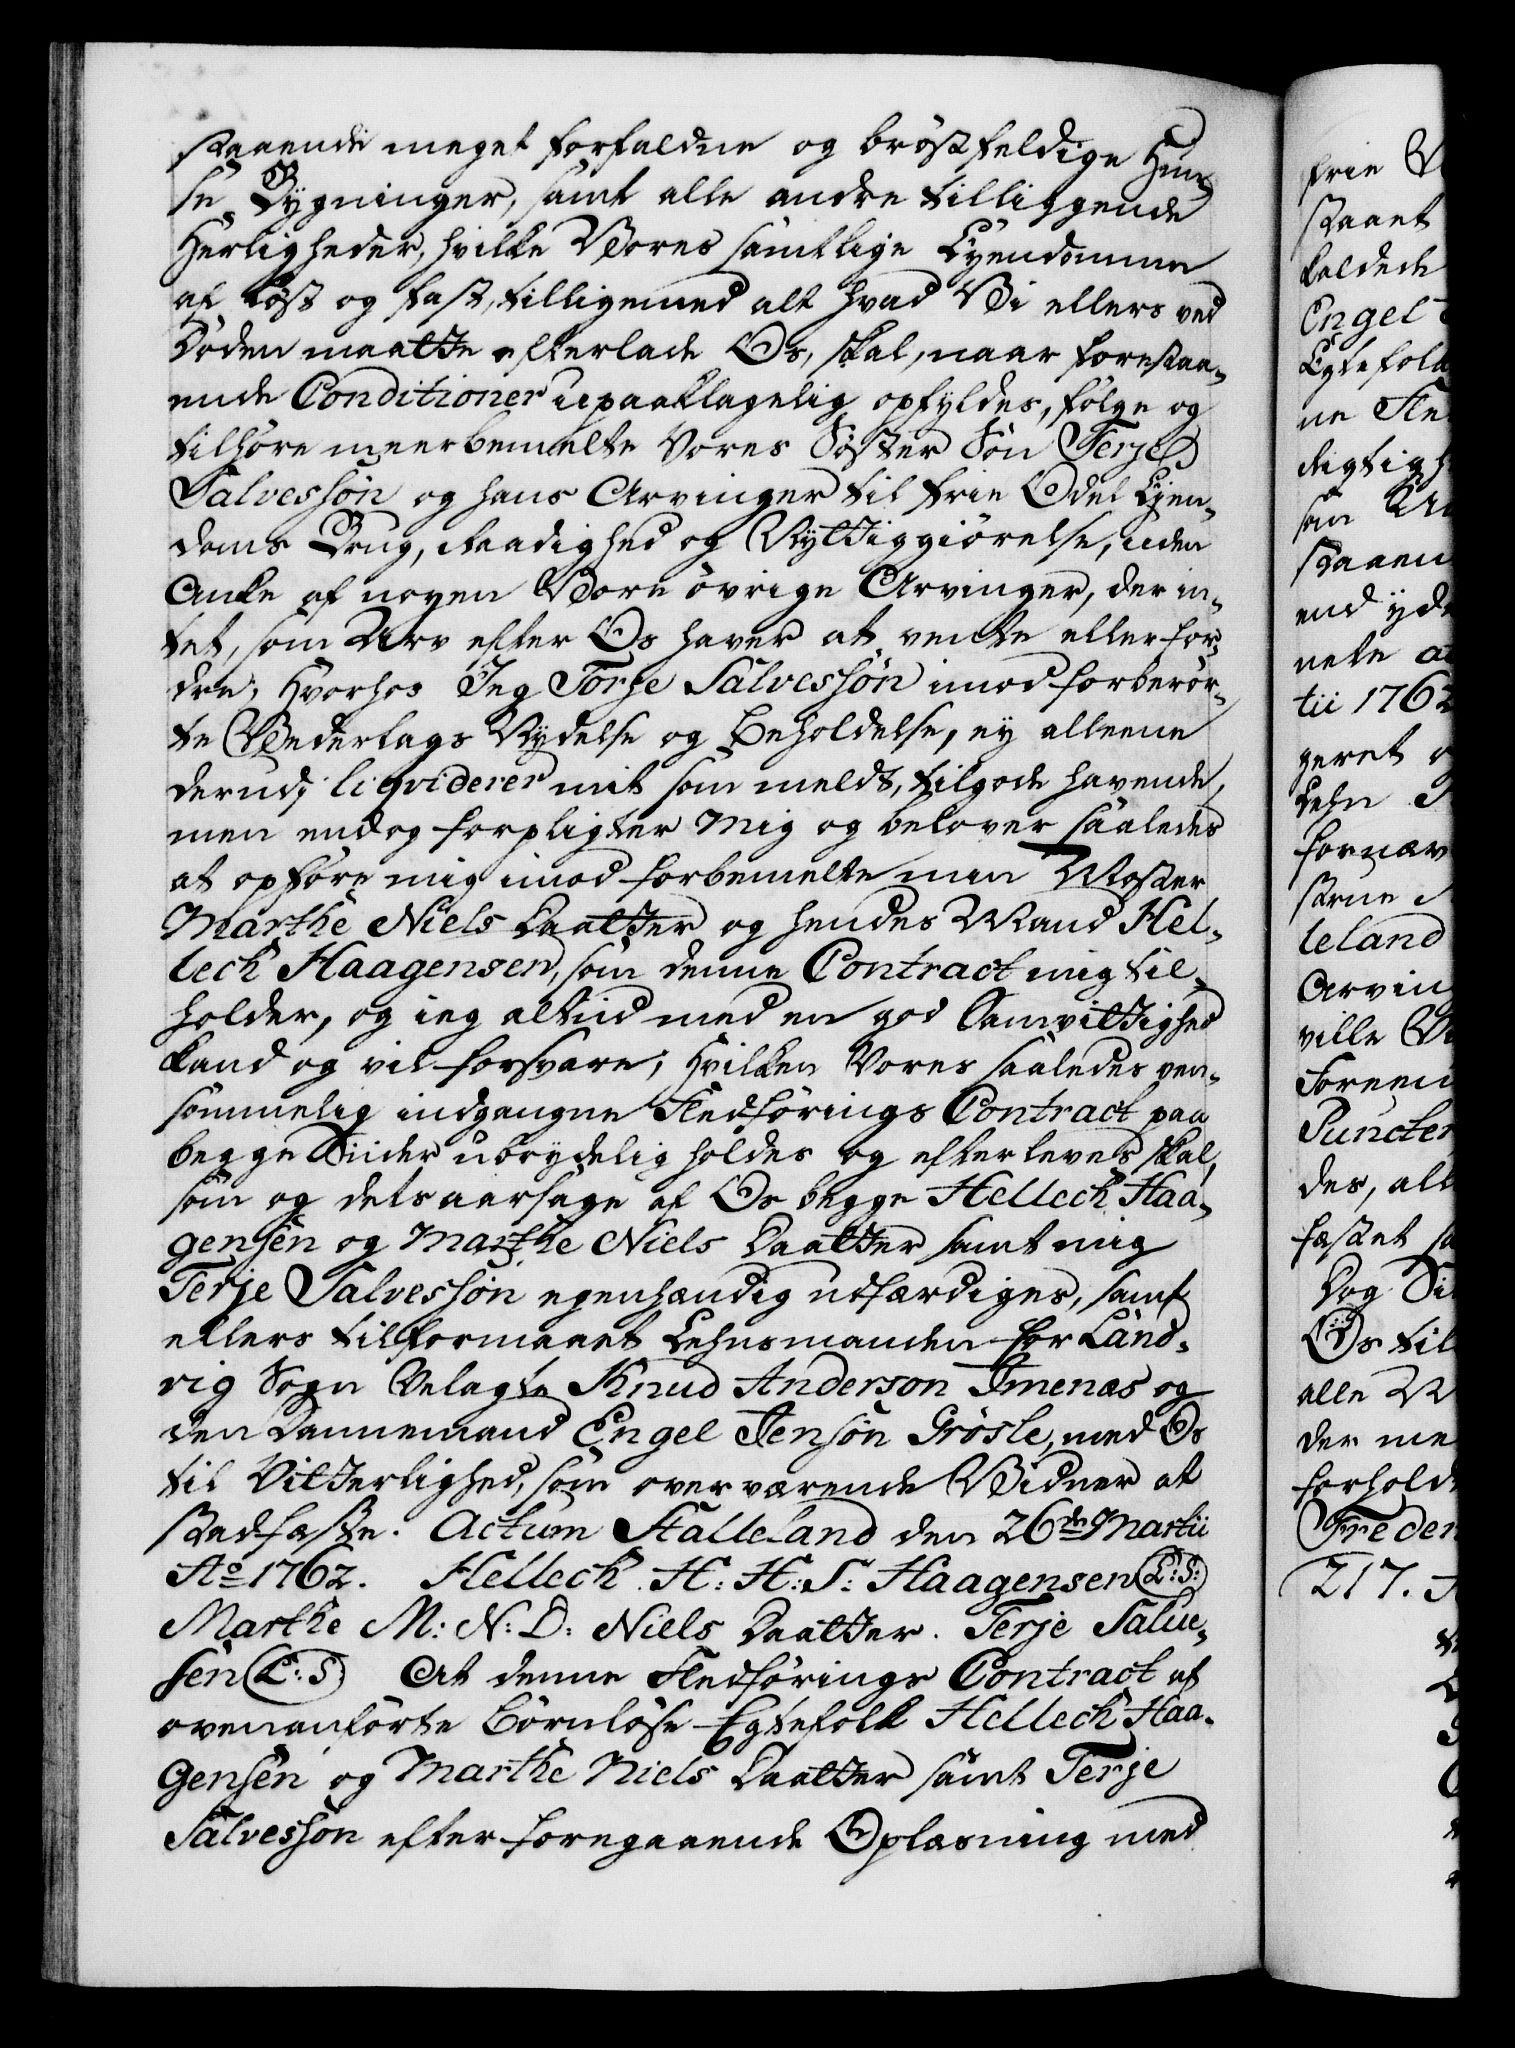 staaende meget forfaldne og bröstfeldige Huu-
se Bygninger, samt alle andre tilliggende
Herligheder, hvilke Vores samtlige Eyendomme
af löst og fast, tilligemed alt hvad Vi ellers ved
Döden maatte efterlade Os, skal, naar forestaa-
ende Conditioner upaaklagelig opfyldes, fölge og
tilhöre meerbemelte Vores Söster Sön Terje
Salvessön og hans Arvinger til frie Odel Eyen-
doms Brug, Raadighed og Nyttiggiörelse, uden
Anke af nogen Vore övrige Arvinger, der in-
tet, som Arv efter Os haver at vente eller for-
dre; Hvorhos Jeg Torje Salvessön imod forberör-
te Vederlags Nydelse og Beholdelse, ey alleene
derudi liqviderer mit som meldt, tilgode havende,
men endog forpligter mig og belover saaledes
at opföre mig imod forbemelte min Moster
Marthe Niels Daatter og hendes Mand Hel-
leck Haagensen, som denne Contract mig til-
holder, og ieg altiid med en god Samvittighed
kand og vil forsvare; Hvilken Vores saaledes ven-
sömmelig indgangne Fledförings Contract paa
begge Siider ubrydelig holdes og efterleves skal,
som og dets aarsage af Os begge Helleck Haa-
gensen og Marthe Niels Daatter samt mig
Terje Salvessön egenhændig udfærdiges, samt
ellers tilformaaet Lehnsmanden for Land-
vig Sogn Velagte Knud Anderson Imenæs og
den Dannemand Engel Jensön Grösle, med Os
til Vitterlighed, som overværende Vidner at
stadfæste. Actum Stalleland den 26de Martii
Ao 1762. Helleck H: H: S: Haagensen (L:S:)
Marthe M: N: D: Niels Daatter. Terje Salve-
sen (L:S) At denne Fledförings Contract af
ovenanförte Börnlöse Egtefolk Helleck Haa-
gensen og Marthe Niels Daatter samt Terje
Salvessön efter foregaaende Oplæsning med
frie
staaet
kaldede
Engel
Egtefolk
ne Fle
digtigh
sön
staaen
end yde
nete
tii 1762
geret
Lehn
fornæv
strue
leland
Arvin
ville
Foreni
Puncter
des, all
fæstet
Dog Si
Os til
alle
der me
forhold
Freder
217.